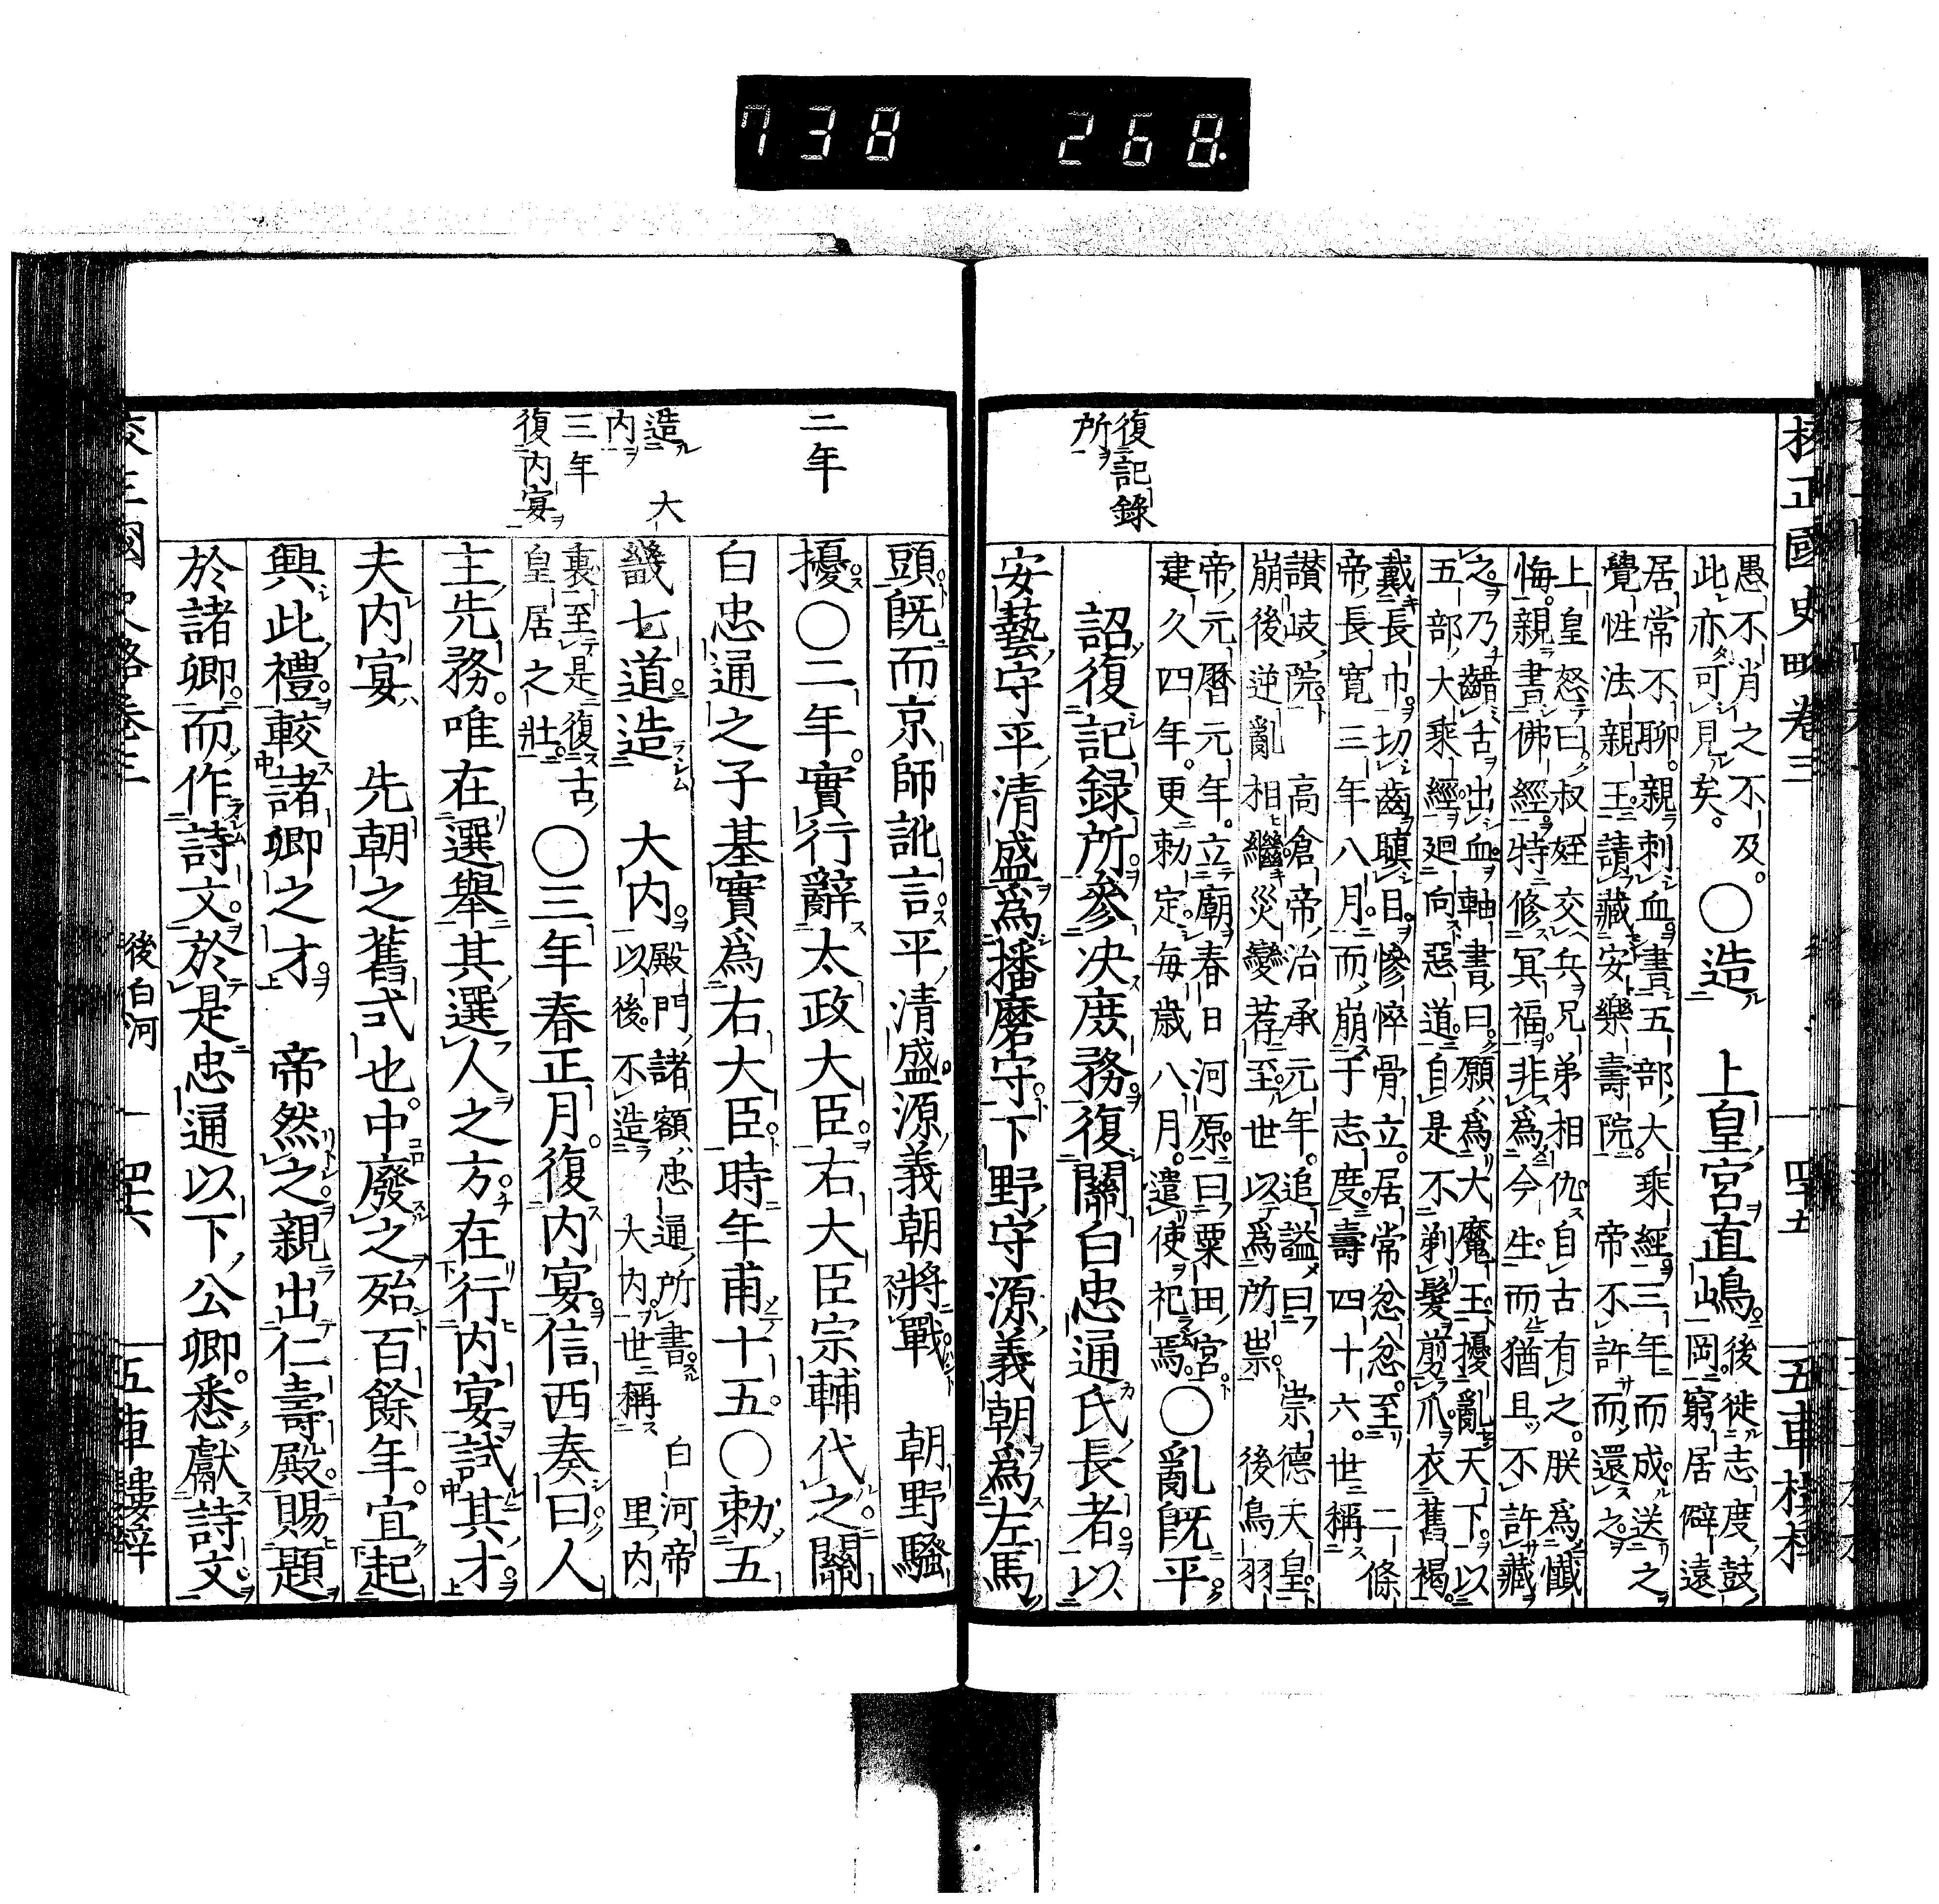 738 268.
校正國史略卷三
四十五
五車樓梓
愚不肖之不及。
此亦可見矣。
〇造 上皇宮直嶋。
後徙志度鼓
岡。窮居僻遠
居常不聊。親刺血。書五部大乘經三年而成送之
覺性法親王。請藏安樂壽院。 帝不許而還之。
上皇怒曰。叔姪交兵兄弟相仇自古有之。朕為懺
悔。親書佛經。特修冥福。非為今生。而猶且不許藏
之。乃齰舌出血。軸書曰。願為大魔王。擾亂天下。以
五部大乘經。廻向惡道。自是不剃髮剪爪。衣舊褐。
戴長巾。切齒瞋目。慘悴骨立。居常忿忿。至 二條
帝長寬三年八月。而崩于志度。壽四十六。世稱
讃岐院。 高倉帝治承元年。追謚曰 崇德天皇。
崩後逆亂相繼災變荐至。世以為所祟。 後鳥羽
帝元曆元年。立廟春日河原。曰粟田宮。
建久四年。更勅定。每歲八月。遣使祀焉。
〇亂既平。
復記錄
所
詔復記録所。參决庶務。復關白忠通氏長者。以
安藝守平清盛為播磨守。下野守源義朝為左馬
頭。既而京師訛言。平清盛源義朝將戰 朝野騷
二年
擾〇二年。實行辭太政大臣。右大臣宗輔代之。關
白忠通之子基實為右大臣。時年甫十五。〇勅五
造 大
內
畿七道。造 大內。
殿門諸額。忠通所書。 白河帝
以後。不造 大內。世稱里內
三年
復內宴
裏。至是復古。
皇居之壯。
〇三年春正月。復內宴。信西奏曰。人
主先務。唯在選舉。其選人之方。在行內宴試其才。
夫內宴 先朝之舊式也。中廢之殆百餘年。宜起
興此禮。較諸卿之才。 帝然之。親出仁壽殿。賜題
於諸卿。而作詩文。於是忠通以下公卿。悉獻詩文。
後白河
四十六
五車樓梓